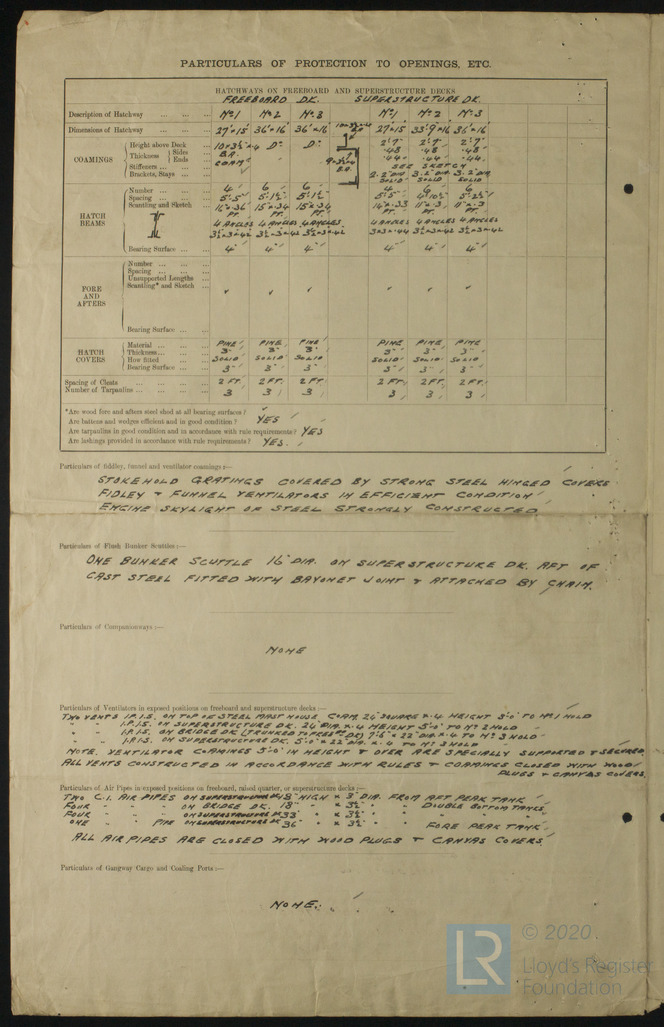 PARTICULARS OF PROTECTION TO OPENINGS, ETC.
HATCHWAYS ON FREEBOARD AND SUPERSTRUCTURE DECKS
FREEBOARD DK. SUPERSTRUCTURE DK.
Description of Hatchway ... ... ... Nº1 Nº2 Nº3 Nº1 Nº2 Nº3
Dimensions of Hatchway ... ... ... 27'×15' 36'×16' 36'×16' 27'×15' 33'9"×16' 36'×16'
COAMINGS
Height above Deck ... 10×3½×.4 Dº Dº 2'.7" 2'.7" 2'.7"
Thickness Sides ... B.A. .48 .48 .48
Ends ... COAMG .44 .44 .44
Stiffeners ... ... SEE SKETCH
Brackets, Stays ... ... 2.2"DIA. 3.2"DIA. 3.2"DIA.
SOLID SOLID SOLID
HATCH BEAMS
Number ... ... ... 4 6 6 4 6 6
Spacing ... ... ... 5'.5" 5'.1½" 5'.1½" 5'.5" 4'10½" 5'.2½"
Scantling and Sketch ... 16"×.36 15"×.34 15"×.34
PT. PT. PT. PT. PT. PT.
4 ANGLES 4 ANGLES 4 ANGLES 4 ANGLES 4 ANGLES 4 ANGLES
3½×3×.42 3½×3×.42 3½×3×.42 3×3×.44 3½×3×.42 3½×3×.42
Bearing Surface ... ... 4" 4" 4" 4" 4" 4"
FORE AND AFTERS
Number ... ... ...
Spacing ... ... ...
Unsupported Lengths ...
Scantling* and Sketch ...
Bearing Surface ... ...
HATCH COVERS
Material ... ... ... PINE PINE PINE PINE PINE PINE
Thickness ... ... ... 3" 3" 3" 3" 3" 3"
How fitted ... ... SOLID SOLID SOLID SOLID SOLID SOLID
Bearing Surface ... ... 3" 3" 3" 3" 3" 3"
Spacing of Cleats ... ... ... ... 2 FT. 2 FT. 2 FT. 2 FT. 2 FT. 2 FT.
Number of Tarpaulins ... ... ... 3 3 3 3 3 3
*Are wood fore and afters steel shod at all bearing surfaces?
Are battens and wedges efficient and in good condition? YES
Are tarpaulins in good condition and in accordance with rule requirements? YES
Are lashings provided in accordance with rule requirements? YES.
Particulars of fiddley, funnel and ventilator coamings:—
STOKEHOLD GRATINGS COVERED BY STRONG STEEL HINGED COVERS
FIDLEY & FUNNEL VENTILATORS IN EFFICIENT CONDITION
ENGINE SKYLIGHT OF STEEL STRONGLY CONSTRUCTED
Particulars of Flush Bunker Scuttles:—
ONE BUNKER SCUTTLE 16" DIA. ON SUPERSTRUCTURE DK. AFT OF
CAST STEEL FITTED WITH BAYONET JOINT & ATTACHED BY CHAIN.
Particulars of Companionways:—
NONE
Particulars of Ventilators in exposed positions on freeboard and superstructure decks:—
TWO VENTS 1.P.1.S. ON TOP OF STEEL MAST HOUSE COAM. 24" SQUARE ×.4 HEIGHT 3'.0" TO Nº1 HOLD
" " 1.P.1.S. ON SUPERSTRUCTURE DK. 24" DIA ×.4 HEIGHT 5'.0" TO Nº2 HOLD
" " 1.P.1.S. ON BRIDGE DK (TRUNKED TO DK) 7'.6" × 22" DIA ×.4 TO Nº3 HOLD
" " 1.P.1.S. ON SUPERSTRUCTURE DK. 5'.0" × 22" DIA × .4 TO Nº3 HOLD
NOTE. VENTILATOR COAMINGS 3'.0" IN HEIGHT & OVER ARE SPECIALLY SUPPORTED & SECURED.
ALL VENTS CONSTRUCTED IN ACCORDANCE WITH RULES & COAMINGS CLOSED WITH WOOD
PLUGS & CANVAS COVERS.
Particulars of Air Pipes in exposed positions on freeboard, raised quarter, or superstructure decks:—
TWO C.I. AIR PIPES ON SUPERSTRUCTURE DK 18" HIGH × 3" DIA. FROM AFT PEAK TANK
FOUR " " " ON BRIDGE DK. 18" " × 3½" " " DOUBLE BOTTOM TANKS
FOUR " " " ON SUPERSTRUCTURE DK 33" " × 3½" " " " "
ONE " " PIPE ON SUPERSTRUCTURE DK 36" " × 3½" " " FORE PEAK TANK
ALL AIR PIPES ARE CLOSED WITH WOOD PLUGS & CANVAS COVERS.
Particulars of Gangway Cargo and Coaling Ports:—
NONE.
LR
© 2020
Lloyd's Register
Foundation